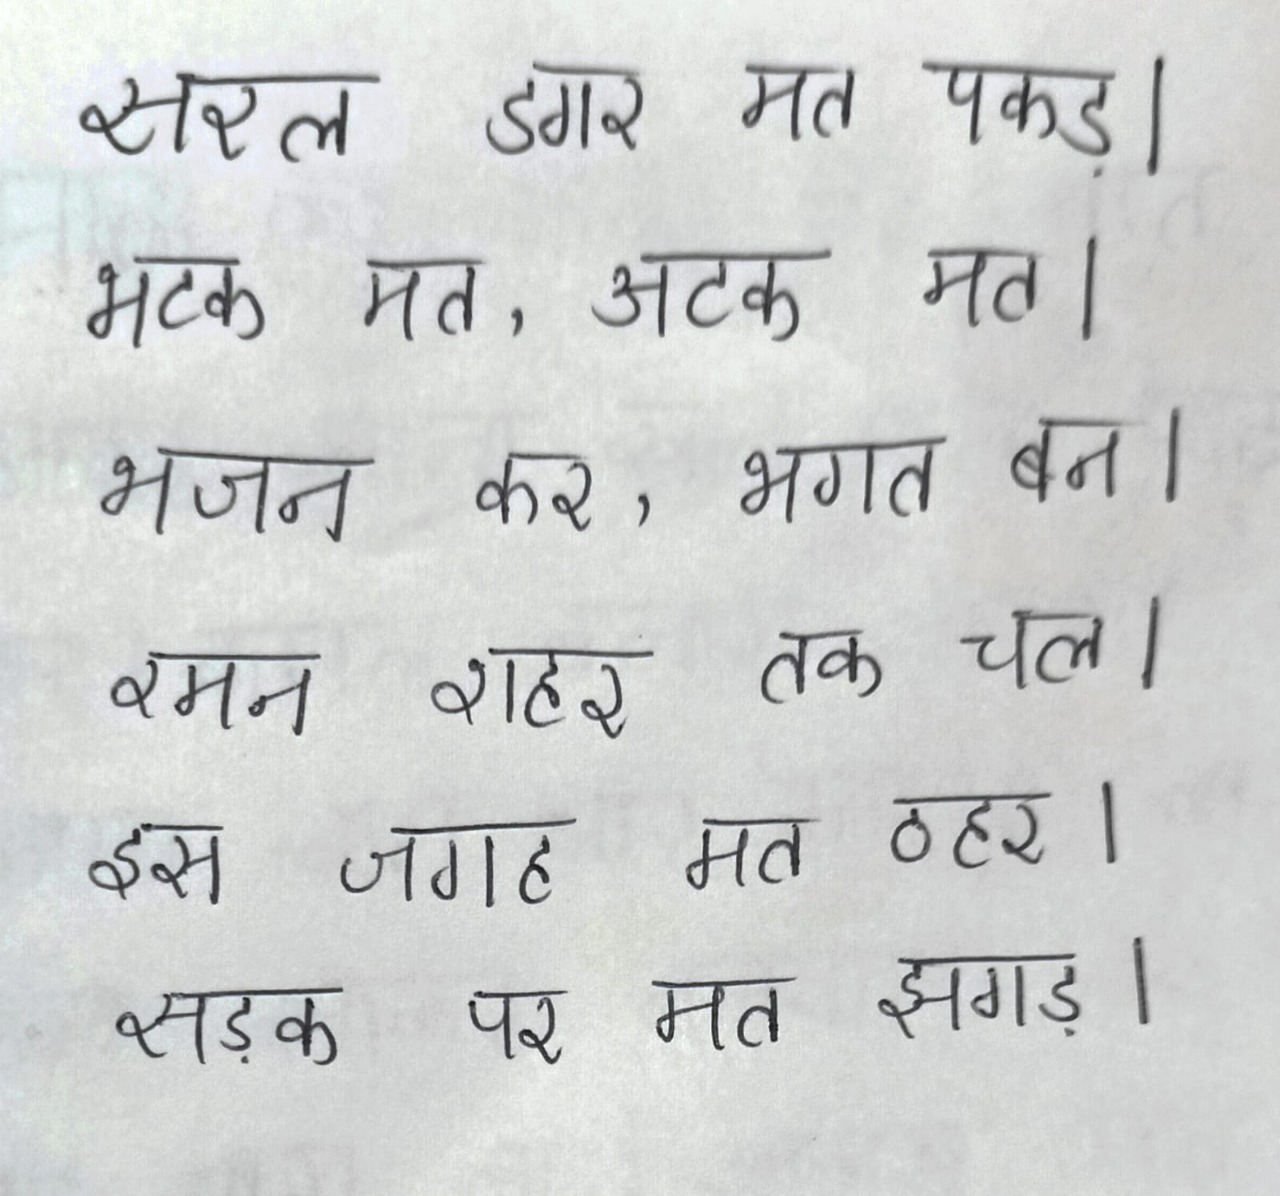 सरल डगर मत पकड़।
भटक मत, अटक मत।
भजन कर, भगत बन।
रमन शहर तक चल।
इस जगह मत ठहर।
सड़क पर मत झगड़।